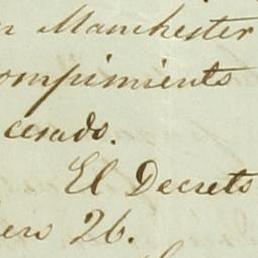 n Manchester
ompimiento
cesado.
El Decreto
ero 26.